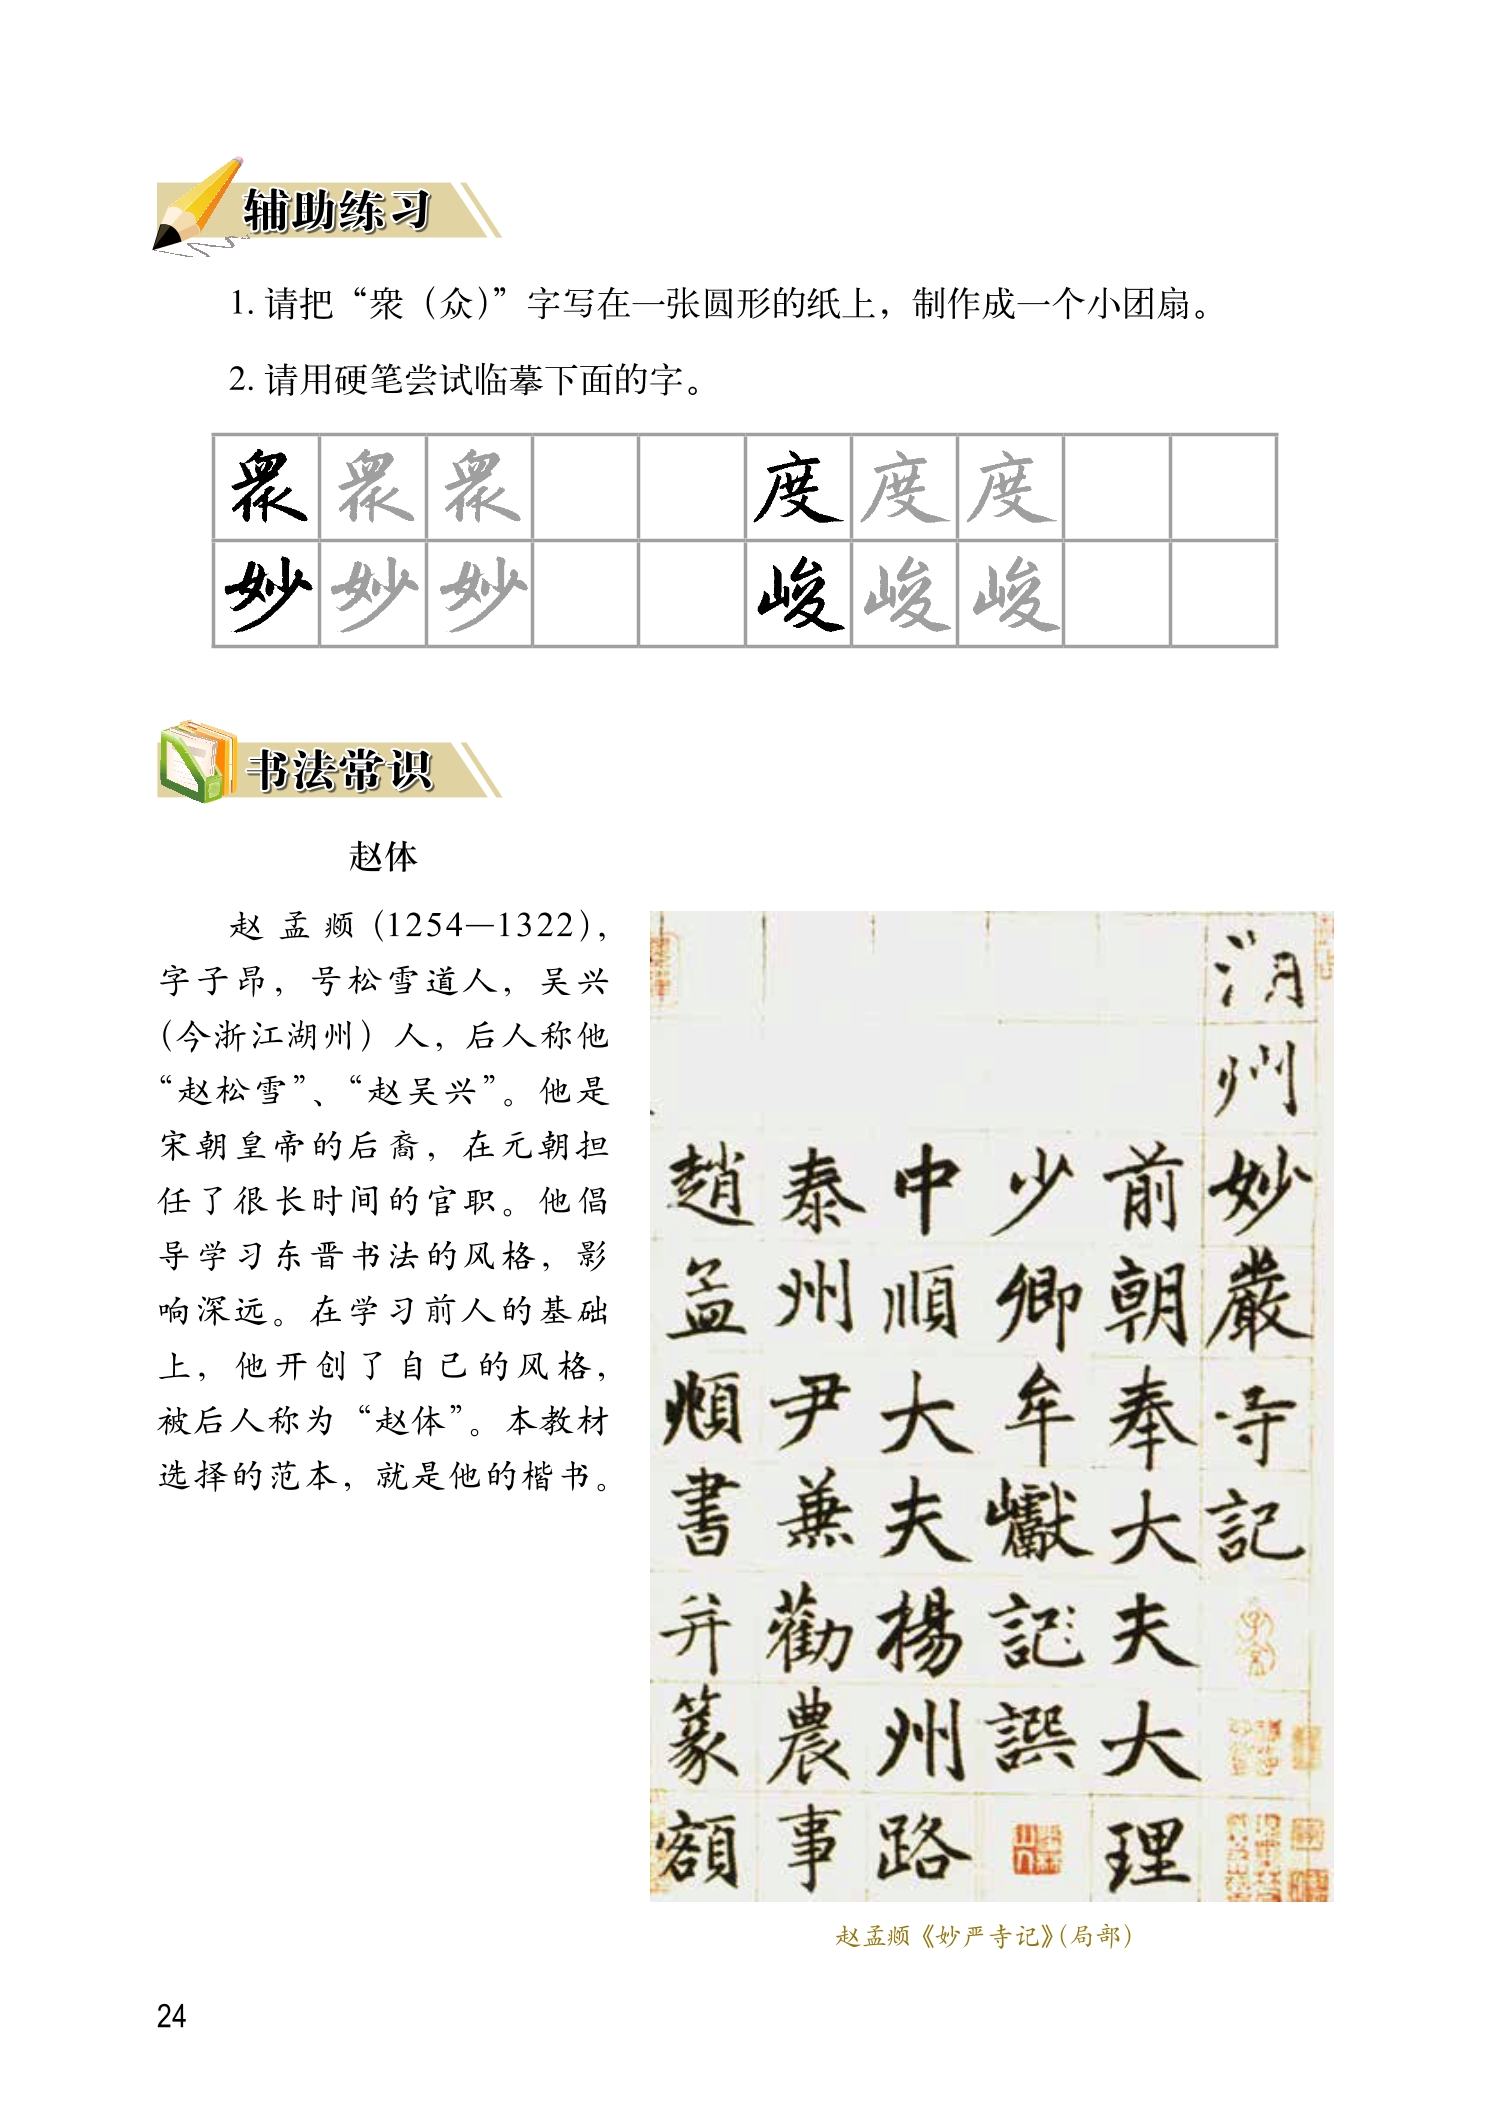 辅助练习
1. 请把“衆（众）”字写在一张圆形的纸上，制作成一个小团扇。
2. 请用硬笔尝试临摹下面的字。
衆 衆 衆 度 度 度
妙 妙 妙 峻 峻 峻
书法常识
赵体
赵孟頫（1254—1322），
字子昂，号松雪道人，吴兴
（今浙江湖州）人，后人称他
“赵松雪”、“赵吴兴”。他是
宋朝皇帝的后裔，在元朝担
任了很长时间的官职。他倡
导学习东晋书法的风格，影
响深远。在学习前人的基础
上，他开创了自己的风格，
被后人称为“赵体”。本教材
选择的范本，就是他的楷书。
湖州妙嚴寺記
前朝奉大夫大理
少卿牟巘記撰
中順大夫揚州路
泰州尹兼勸農事
趙孟頫書并篆額
赵孟頫《妙严寺记》（局部）
24